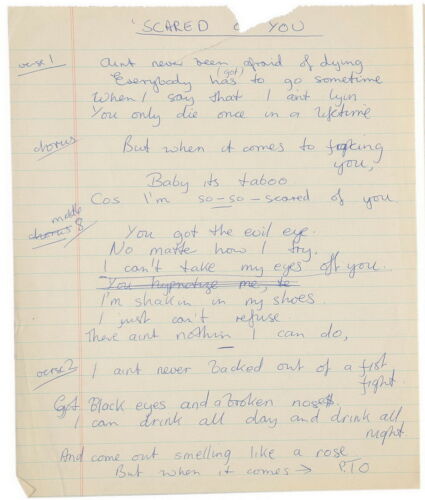 'SCARED O YOU
verse 1
aint never been afraid of dying
Everybody has (got) to go sometime
When I say that I aint lyin
You only die once in a lifetime
chorus
But when it comes to fooking
you,
Baby its taboo
Cos I'm so-so-scared of you
middle
chorus 8
You got the evil eye.
No matter how I try.
I can't take my eyes off you.
You hypnotize me, te
I'm shakin in my shoes.
I just can't refuse.
There aint nothin I can do,
verse 2
I aint never backed out of a fist
fight.
Got Black eyes and a broken nose
I can drink all day and drink all
night
And come out smelling like a rose
But when it comes → P.T.O